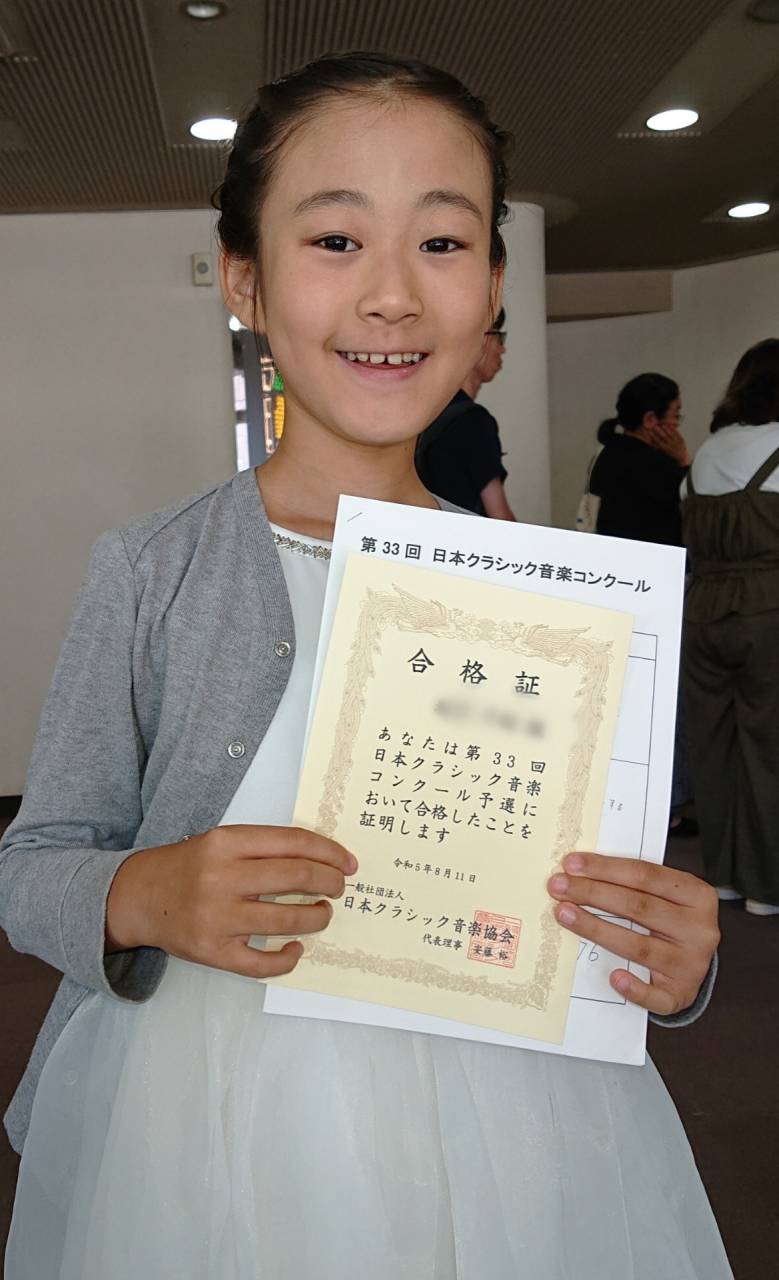 第33回 日本クラシック音楽コンクール
合格証
あなたは第33回
日本クラシック音楽
コンクール予選に
おいて合格したことを
証明します
令和5年8月11日
一般社団法人
日本クラシック音楽協会
代表理事 安藤 裕